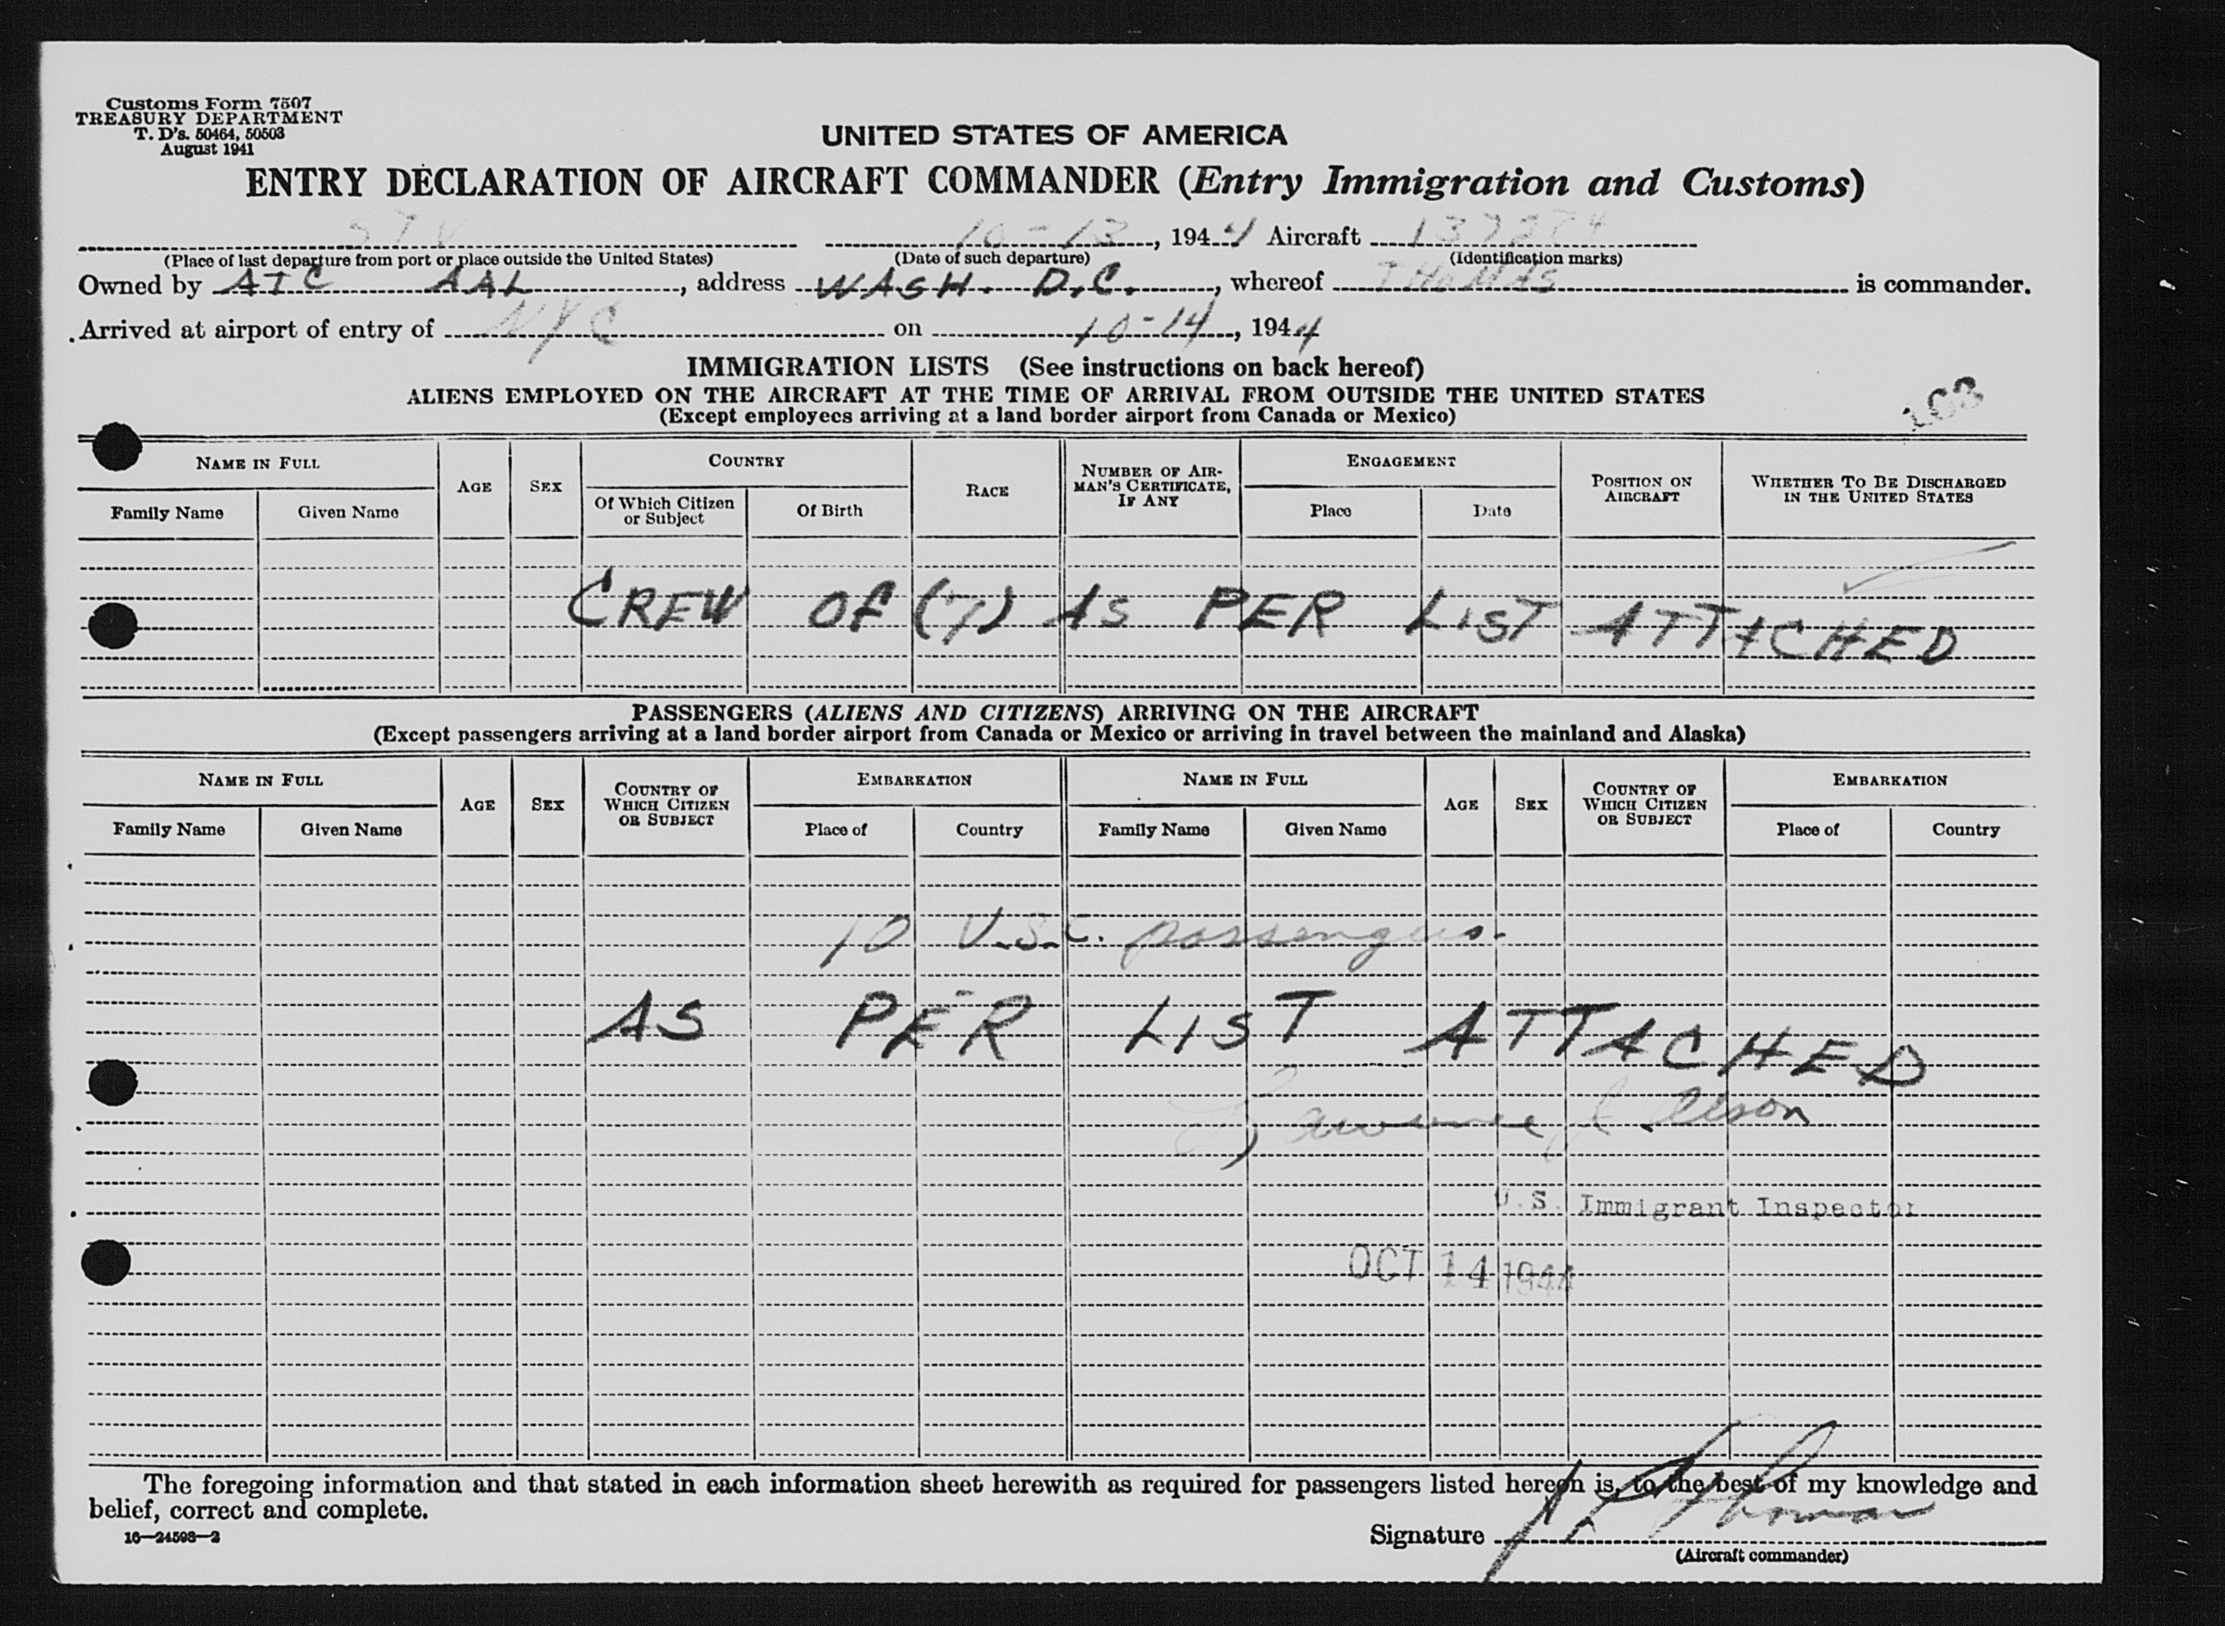 Customs Form 7507
TREASURY DEPARTMENT
T. D's. 50464, 50503
August 1941
UNITED STATES OF AMERICA
ENTRY DECLARATION OF AIRCRAFT COMMANDER (Entry Immigration and Customs)
10-13, 1944 Aircraft
(Place of last departure from port or place outside the United States) (Date of such departure) (Identification marks)
Owned by ATC AAL, address WASH. D.C., whereof THOMAS is commander.
Arrived at airport of entry of NYC on 10-14, 1944
IMMIGRATION LISTS (See instructions on back hereof)
ALIENS EMPLOYED ON THE AIRCRAFT AT THE TIME OF ARRIVAL FROM OUTSIDE THE UNITED STATES
(Except employees arriving at a land border airport from Canada or Mexico)
NAME IN FULL AGE SEX COUNTRY RACE NUMBER OF AIRMAN'S CERTIFICATE, IF ANY ENGAGEMENT POSITION ON AIRCRAFT WHETHER TO BE DISCHARGED IN THE UNITED STATES
Family Name Given Name Of Which Citizen or Subject Of Birth Place Date
CREW OF (7) AS PER LIST ATTACHED
PASSENGERS (ALIENS AND CITIZENS) ARRIVING ON THE AIRCRAFT
(Except passengers arriving at a land border airport from Canada or Mexico or arriving in travel between the mainland and Alaska)
NAME IN FULL AGE SEX COUNTRY OF WHICH CITIZEN OR SUBJECT EMBARKATION NAME IN FULL AGE SEX COUNTRY OF WHICH CITIZEN OR SUBJECT EMBARKATION
Family Name Given Name Place of Country Family Name Given Name Place of Country
10 U.S.C. passengers.
AS PER LIST ATTACHED
Lawrence
U.S. Immigrant Inspector
OCT 14 1944
The foregoing information and that stated in each information sheet herewith as required for passengers listed hereon is, to the best of my knowledge and
belief, correct and complete.
16—24593—2
Signature Thomas
(Aircraft commander)